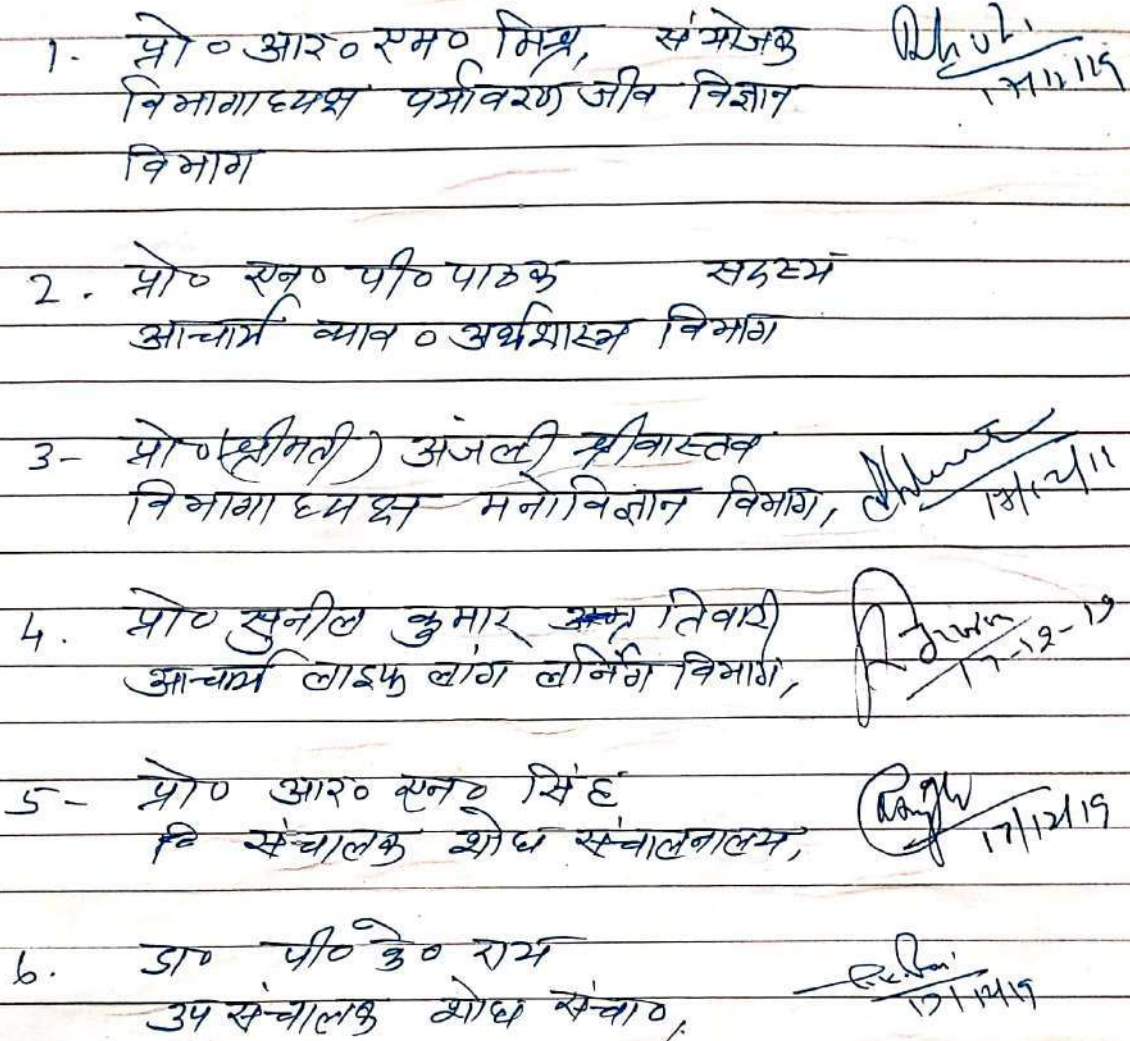 1. प्रो० आर० एम० मिश्र, संयोजक
विभागाध्यक्ष पर्यावरण जीव विज्ञान
विभाग
2. प्रो० एन० पी० पाठक सदस्य
आचार्य व्याव० अर्थशास्त्र विभाग
3- प्रो० (श्रीमती) अंजली श्रीवास्तव
विभागाध्यक्ष मनोविज्ञान विभाग,
4. प्रो० सुनील कुमार तिवारी 17-12-19
आचार्य लाइफ लांग लर्निंग विभाग,
5- प्रो० आर० एन० सिंह
संचालक शोध संचालनालय, 17/12/19
6. डा० पी० के० राय
उप संचालक शोध संचा०,